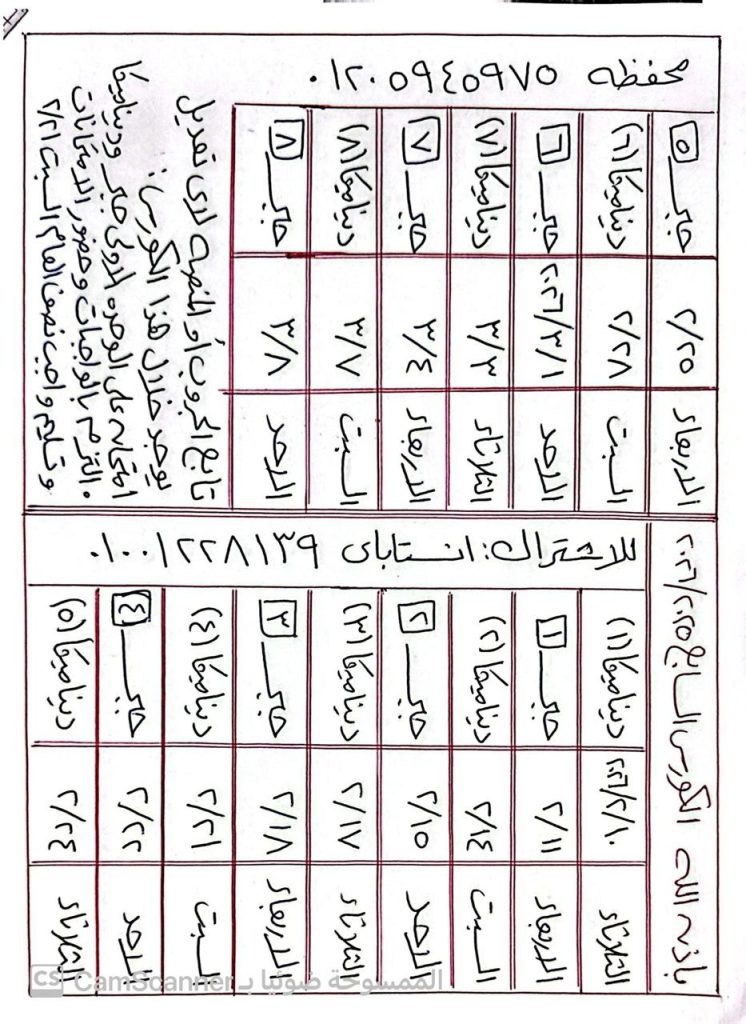 بإذن الله الكورس السابع ٢٠٢٥/٢٠٢٦
الثلاثاء ٢٠٢٦/٢/١٠ ديناميكا (١)
الاربعاء ٢/١١ جبر ١
السبت ٢/١٤ ديناميكا (٢)
الاحد ٢/١٥ جبر ٢
الثلاثاء ٢/١٧ ديناميكا (٣)
الاربعاء ٢/١٨ جبر ٣
السبت ٢/٢١ ديناميكا (٤)
الاحد ٢/٢٢ جبر ٤
الثلاثاء ٢/٢٤ ديناميكا (٥)
للاشتراك: انستاباى ٠١٠٠١٢٢٨١٣٩
الاربعاء ٢/٢٥ جبر ٥
السبت ٢/٢٨ ديناميكا (٦)
الاحد ٢٠٢٦/٣/١ جبر ٦
الثلاثاء ٣/٣ ديناميكا (٧)
الاربعاء ٣/٤ جبر ٧
السبت ٣/٧ ديناميكا (٨)
الاحد ٣/٨ جبر ٨
محفظه ٠١٢٠٥٩٤٥٩٧٥
تابع الجروب أو المنصه لاى تعديل
يوجد خلال هذا الكورس:
امتحان على الوحده الاولى جبر وديناميكا
• التزم بالواجبات وحضور الامتحانات
وتسليم واجب نصف العام السبت ٢/٢١
CS الممسوحة ضوئيا بـ CamScanner